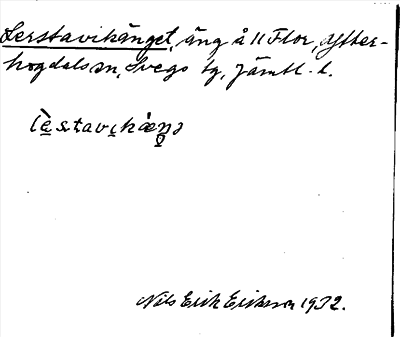 Lerstavikänget, äng å 11 Flor, Ytter-
hogdals sn, Svegs tg, Jämtl. l.
Nils Erik Eriksson 1932.